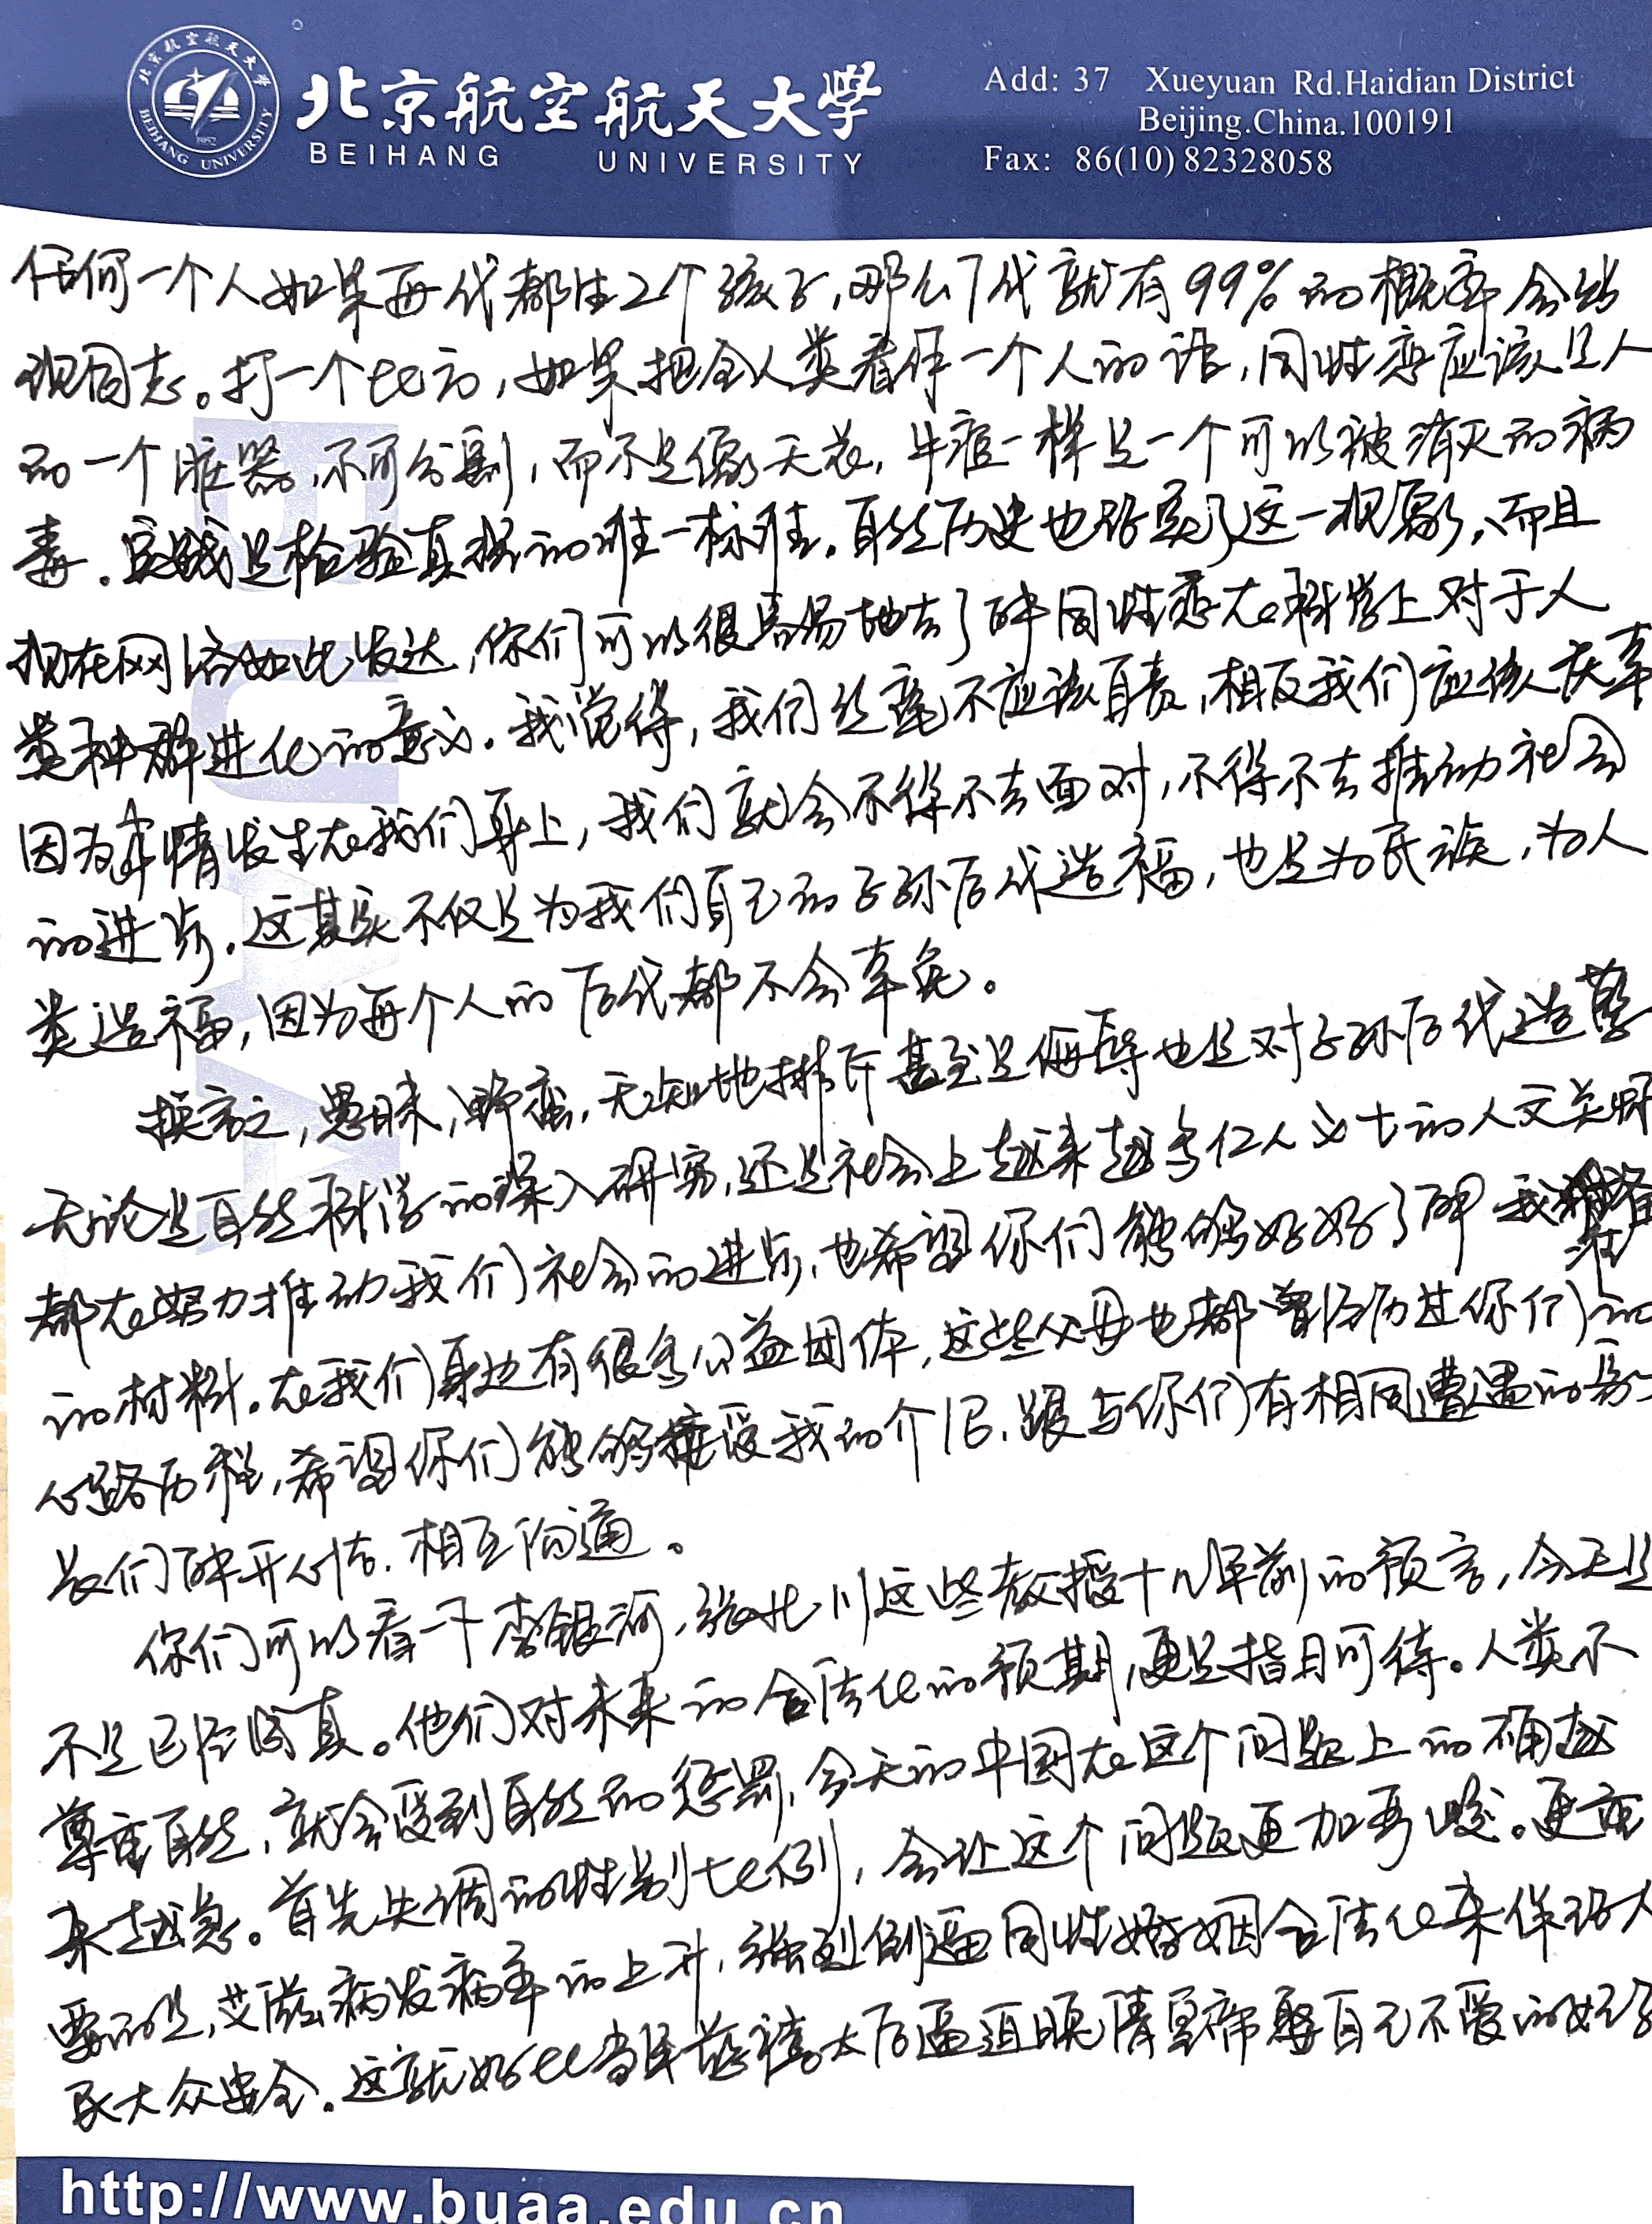 北京航空航天大學
BEIHANG UNIVERSITY
北京航空航天大学
BEIHANG UNIVERSITY
1952
Add: 37 Xueyuan Rd.Haidian District
Beijing.China.100191
Fax: 86(10) 82328058
任何一个人如果每代都生2个孩子,那么7代就有99%的概率会出
现同志。打一个比方,如果把全人类看作一个人的话,同性恋应该是人
的一个脏器,不可分割,而不是像天花,牛痘一样是一个可以被消灭的病
毒。实践是检验真理的唯一标准。自然历史也证实了这一现象,而且
现在网络如此发达,你们可以很容易地去了解同性恋在科学上对于人
类种群进化的意义。我觉得,我们丝毫不应该自责,相反我们应该庆幸
因为事情发生在我们身上,我们就会不得不去面对,不得不去推动社会
的进步。这其实不仅是为我们自己的子孙后代造福,也是为民族,为人
类造福,因为每个人的后代都不会幸免。
换言之,愚昧,野蛮,无知地排斥甚至是侮辱也是对子孙后代造孽
无论是自然科学的深入研究,还是社会上越来越多仁人义士的人文关怀
都在努力推动我们社会的进步,也希望你们能够好好了解我准备
的材料。在我们身边有很多公益团体,这些父母也都曾经历过你们的
心路历程,希望你们能够接受我的介绍,跟与你们有相同遭遇的家
长们解开心结,相互沟通。
你们可以看一下李银河,张北川这些教授十几年前的预言,今天是
不是已经成真。他们对未来的合法化的预期,更是指日可待。人类不
尊重自然,就会受到自然的惩罚,今天的中国在这个问题上的 越
来越急。首先失调的性别比例,会让这个问题更加严峻。更重
要的是,艾滋病发病率的上升,强烈倒逼同性婚姻合法化来保证人
民大众安全。这就好比当年慈禧太后逼迫 清皇帝娶自己不爱的
BUAA
http://www.buaa.edu.cn